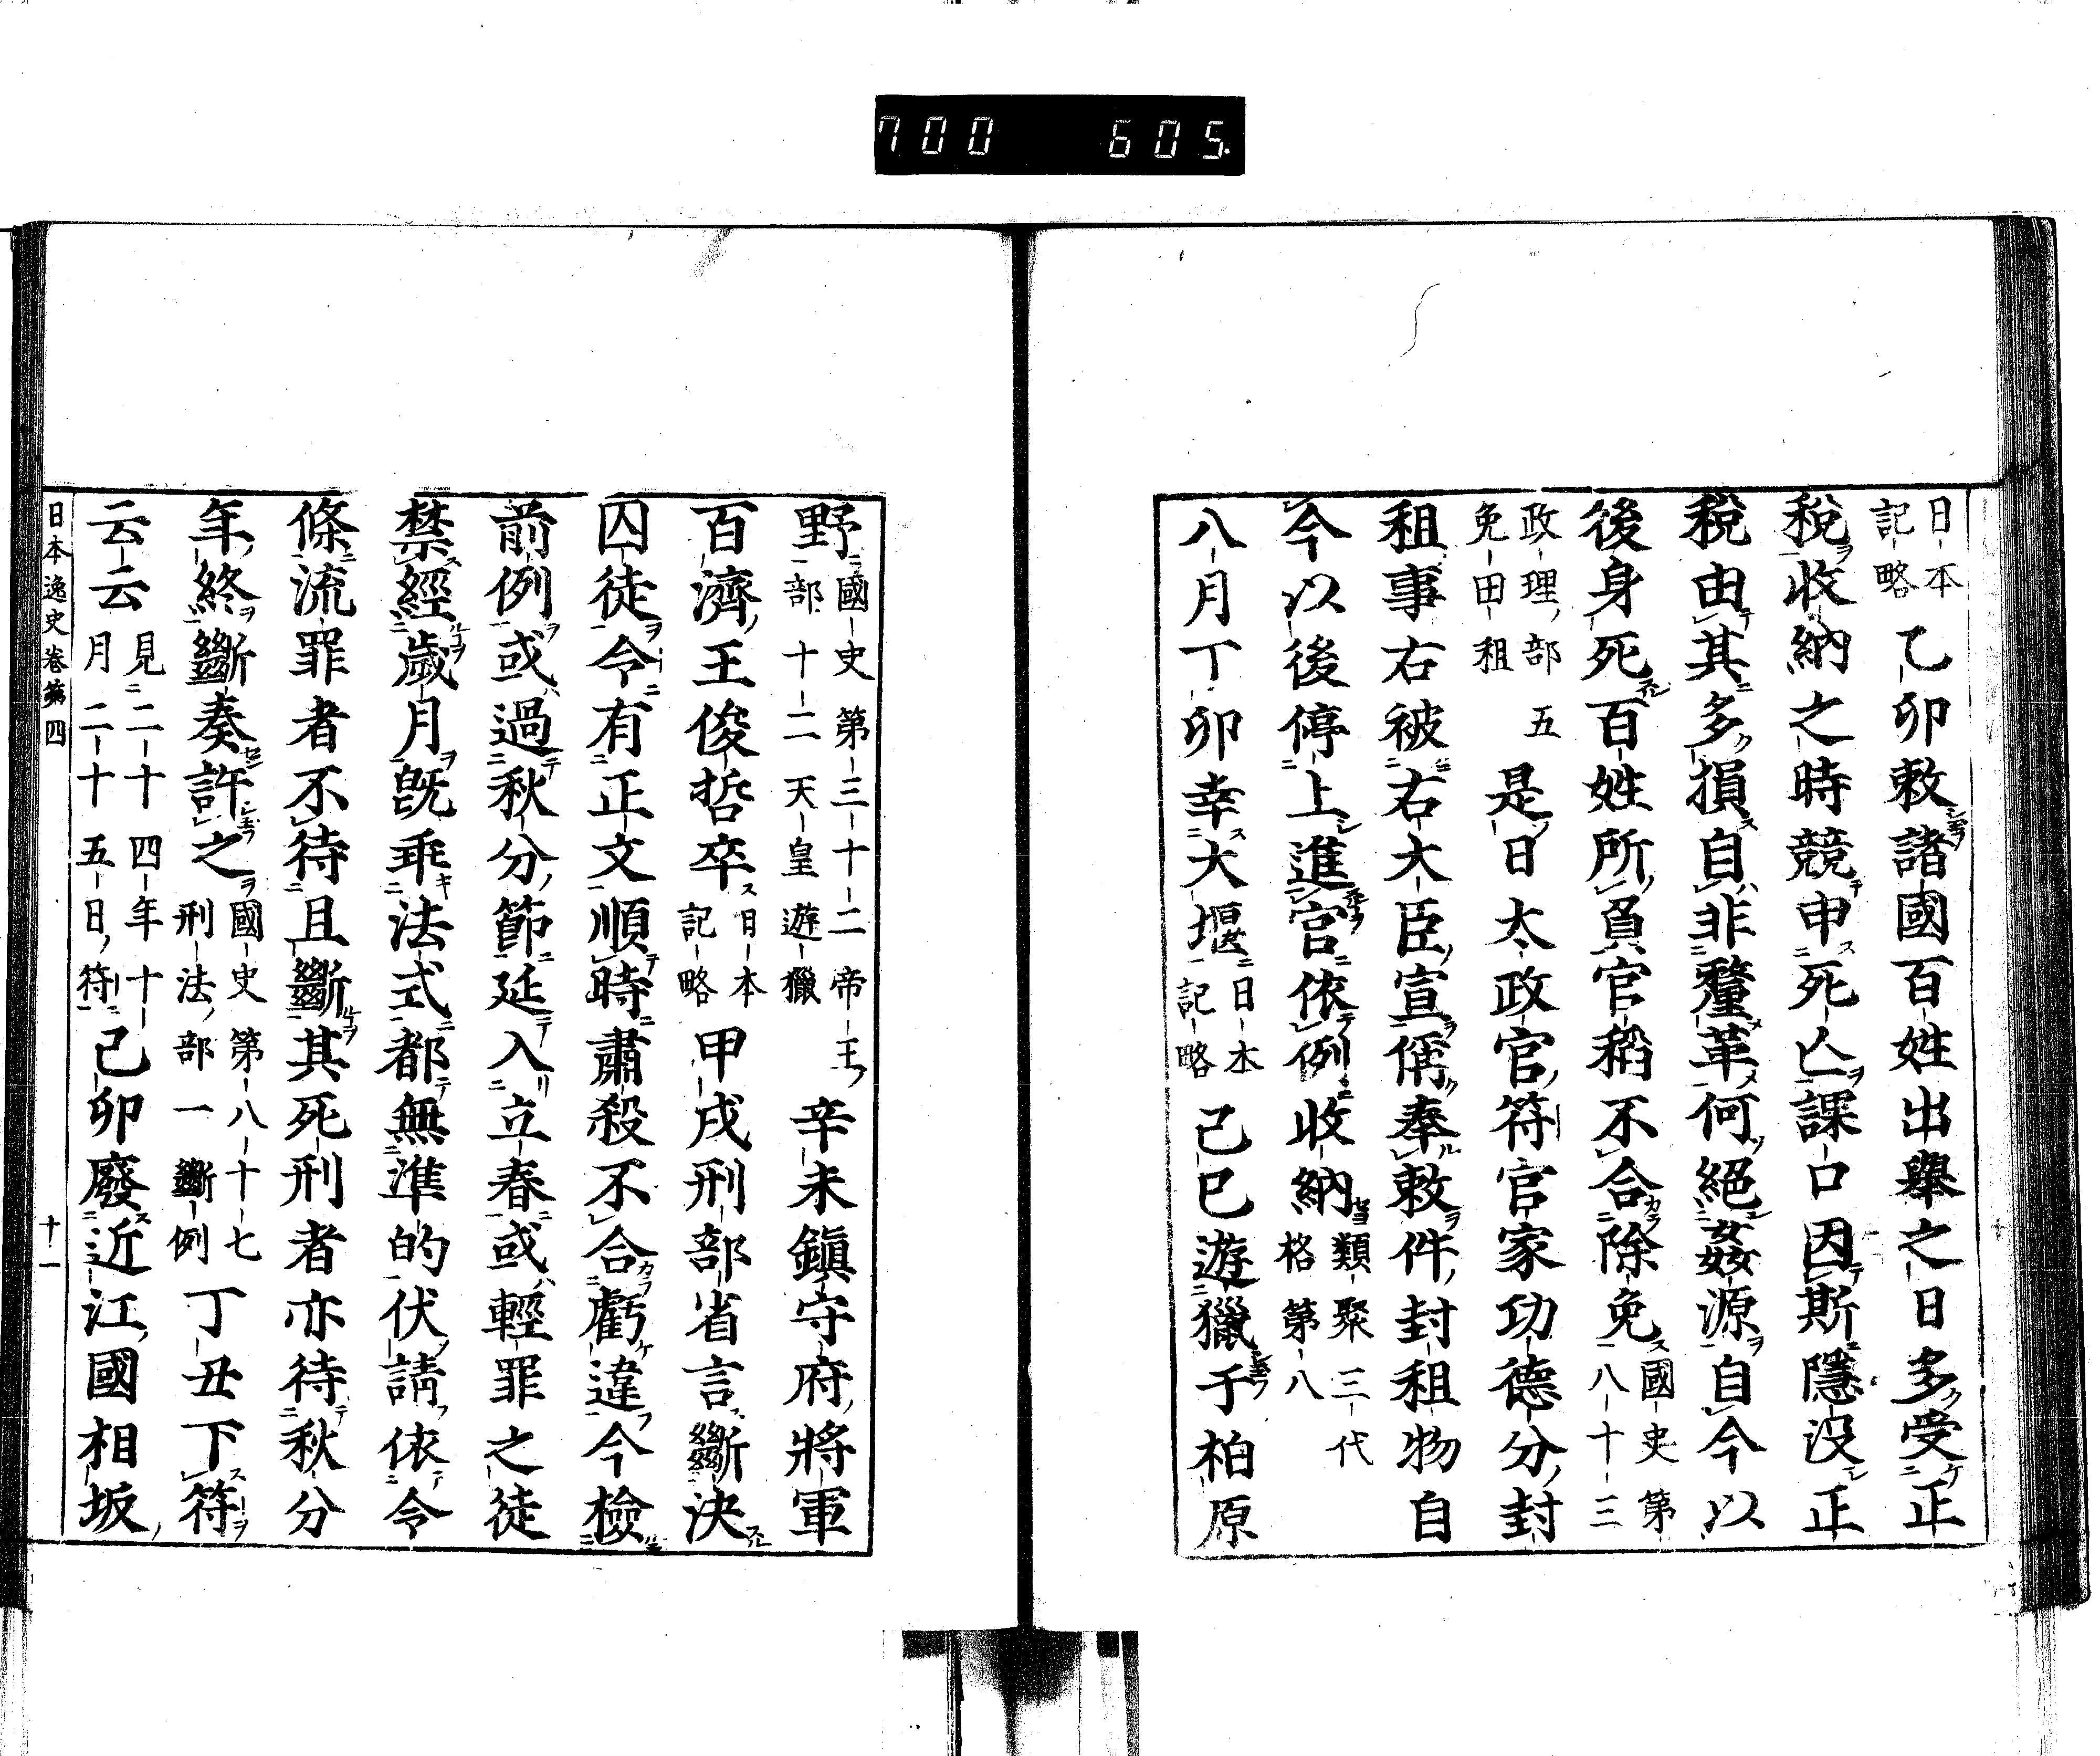 700 605
日本記略乙卯敕諸國百姓出舉之日多受正
稅收納之時競申死亡課口因斯隱沒正
稅由其多損自非釐革何絕姦源自今以
後身死百姓所負官稻不合除免國史第八十三
政理部五免田租是日太政官符官家功德分封
租事右被右大臣宣偁奉敕件封租物自
今以後停上進官依例收納類聚三代格第八
八月丁卯幸大堰日本記略己巳遊獵于柏原
野國史第三十二帝王部十二天皇遊獵辛未鎭守府將軍
百濟王俊哲卒日本記略甲戌刑部省言斷決
囚徒令有正文順時肅殺不合虧違今檢
前例或過秋分節延入立春或輕罪之徒
禁經歲月旣乖法式都無準的伏請依令
條流罪者不待且斷其死刑者亦待秋分
年終斷奏許之國史第八十七刑法部一斷例丁丑下符
云云見二十四年十月二十五日符己卯廢近江國相坂
日本逸史卷第四 十一